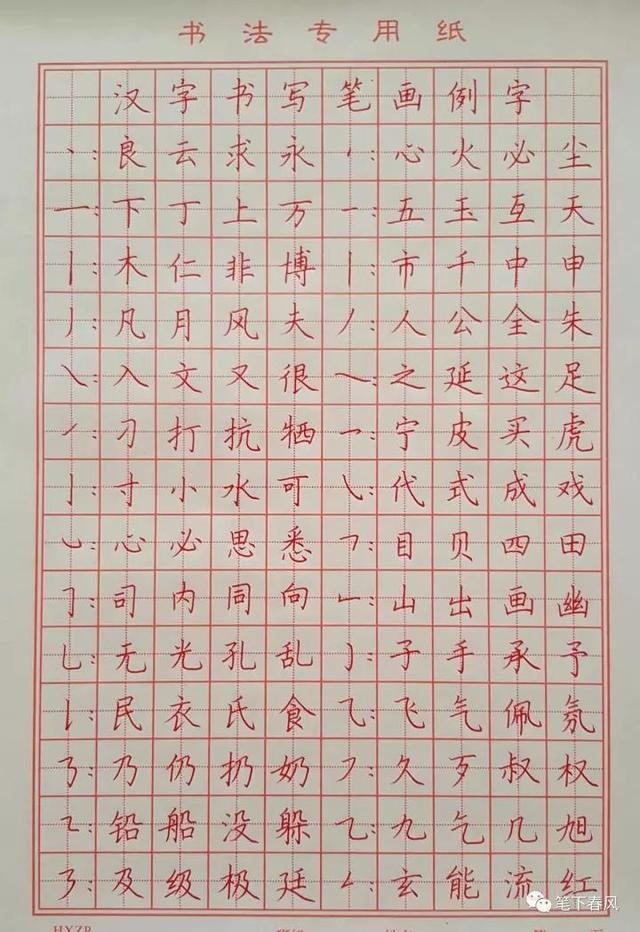 书法专用纸
汉字书写笔画例字
丶：良云求永 丶：心火必尘
一：下丁上万 一：五玉互天
丨：木仁非博 丨：市千中申
丿：凡月风夫 丿：人公全朱
㇏：入文又很 ㇏：之延这足
㇀：刁打抗牺 乛：宁皮买虎
亅：寸小水可 ㇂：代式成戏
㇃：心必思悉 ㇕：目贝四田
㇆：司内同向 ㇗：山出画幽
乚：无光孔乱 ㇁：子手承予
㇙：民衣氏食 ⺄：飞气佩氛
㇡：乃仍扔奶 ㇇：久歹叔权
㇍：铅船没躲 乙：九乞几旭
㇋：及级极廷 ㇜：玄能流红
HYZP
笔下春风